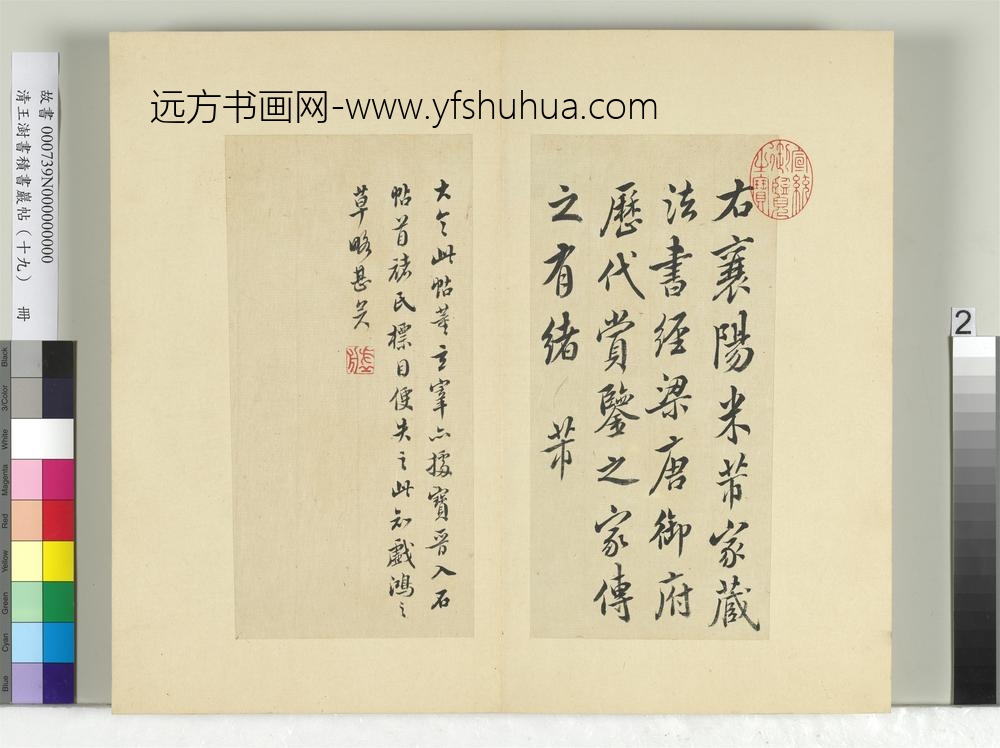 远方书画网-www.yfshuhua.com
故書 000739N000000000
清王澍書積書巖帖（十九） 冊
宣統御覽之寶
右襄陽米芾家藏
法書經梁唐御府
歷代賞鑒之家傳
之有緒 芾
大令此帖董玄宰亦據寶晉入石
帖首褚氏標目便失之此知戲鴻之
草略甚矣
2
Black
3/Color
White
Magenta
Red
Yellow
Green
Cyan
Blue